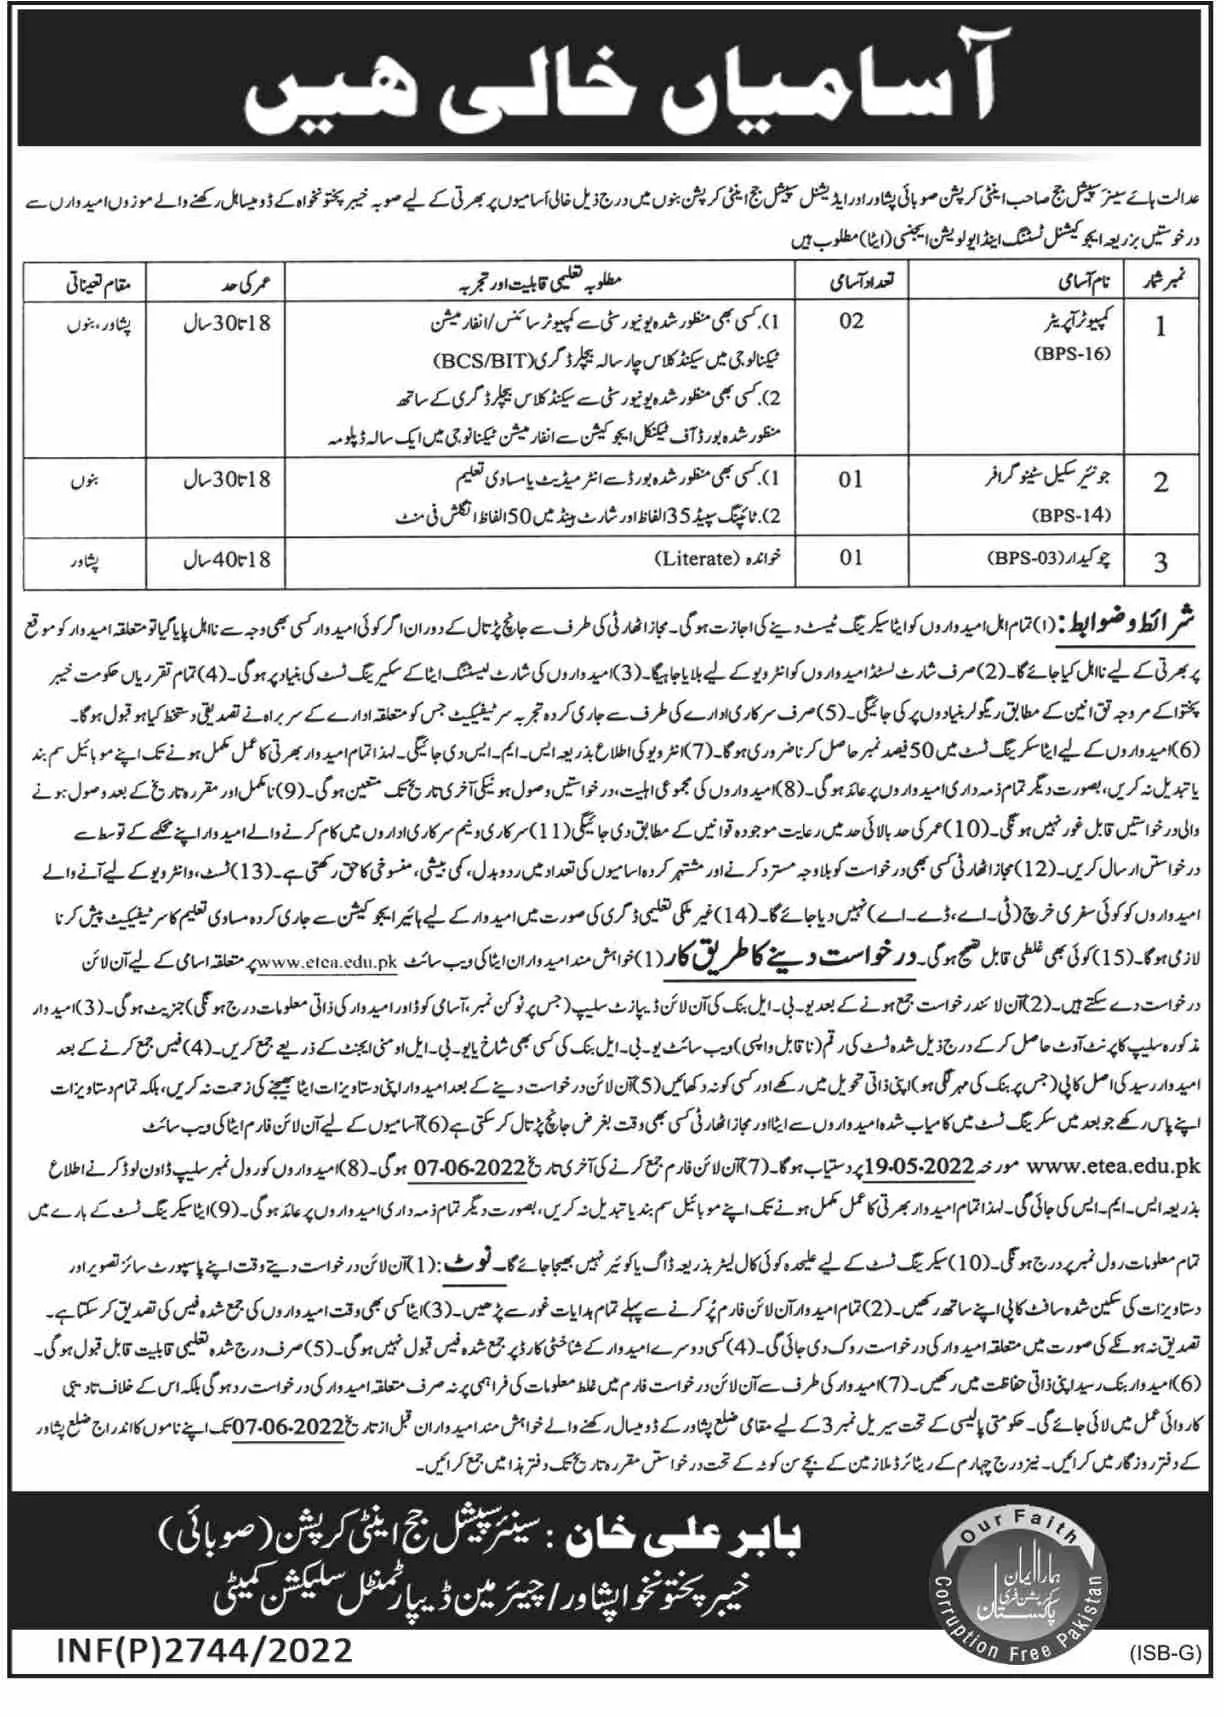 آسامیاں خالی ھیں
عدالت ہائے سینئر سپیشل جج صاحب اینٹی کرپشن صوبائی پشاور اور ایڈیشنل سپیشل جج اینٹی کرپشن بنوں میں درج ذیل خالی آسامیوں پر بھرتی کے لیے صوبہ خیبر پختونخواہ کے ڈومیسائل رکھنے والے موزوں امیدواروں سے
درخوستیں بزریعہ ایجوکیشنل ٹسٹنگ اینڈ ایولویشن ایجنسی (ایٹا) مطلوب ہیں
نمبر شمار نام آسامی تعداد آسامی مطلوبہ تعلیمی قابلیت اور تجربہ عمر کی حد مقام تعیناتی
1 کمپیوٹر آپریٹر 02 1). کسی بھی منظور شدہ یونیورسٹی سے کمپیوٹر سائنس/انفارمیشن 18 تا 30 سال پشاور، بنوں
(BPS-16) ٹیکنالوجی میں سیکنڈ کلاس چار سالہ بیچلر ڈگری (BCS/BIT)
2). کسی بھی منظور شدہ یونیورسٹی سے سیکنڈ کلاس بیچلر ڈگری کے ساتھ
منظور شدہ بورڈ آف ٹیکنکل ایجوکیشن سے انفارمیشن ٹیکنانوجی میں ایک سالہ ڈپلومہ
2 جونئیر سکیل سٹینوگرافر 01 1). کسی بھی منظور شدہ بورڈ سے انٹرمیڈیٹ یا مساوی تعلیم 18 تا 30 سال بنوں
(BPS-14) 2). ٹائپنگ سپیڈ 35 الفاظ اور شارٹ ہینڈ میں 50 الفاظ انگلش فی منٹ
3 چوکیدار (BPS-03) 01 خواندہ (Literate) 18 تا 40 سال پشاور
شرائط و ضوابط: (۱) تمام اہل امیدواروں کو ایٹا سیکرینگ ٹیسٹ دینے کی اجازت ہوگی۔ مجاز اتھارٹی کی طرف سے جانچ پڑتال کے دوران اگر کوئی امیدوار کسی بھی وجہ سے نااہل پایا گیا تو متعلقہ امیدوار کو موقع
پر بھرتی کے لیے نااہل کیا جائے گا۔ (2) صرف شارٹ لسٹڈ امیدواروں کو انٹرویو کے لیے بلایا جاہیگا۔ (3) امیدواروں کی شارٹ لیسٹنگ ایٹا کے سکیرینگ ٹسٹ کی بنیاد پر ہوگی۔ (4) تمام تقرریاں حکومت خیبر
پختوا کے مروجہ قوانین کے مطابق ریگولر بنیادوں پر کی جائیگی۔ (5) صرف سرکاری ادارے کی طرف سے جاری کردہ تجربہ سرٹیفیکیٹ جس کو متعلقہ ادارے کے سربراہ نے تصدیقی دستخط کیا ہو قبول ہوگا۔
(6) امیدواروں کے لیے ایٹا سکرینگ ٹسٹ میں 50 فیصد نمبر حاصل کرنا ضروری ہوگا۔ (7) انٹرویو کی اطلاع بذریعہ ایس۔ایم۔ایس دی جائیگی۔ لہذا تمام امیدوار بھرتی کا عمل مکمل ہونے تک اپنے موبائیل سم بند
یا تبدیل نہ کریں، بصورت دیگر تمام ذمہ داری امیدواروں پر عائد ہوگی۔ (8) امیدواروں کی مجموعی اہلیت، درخواستیں وصول ہونیکی آخری تاریخ تک متعین ہوگی۔ (9) نامکمل اور مقررہ تاریخ کے بعد وصول ہونے
والی درخواستیں قابل غور نہیں ہونگی۔ (10) عمر کی حد بالائی حد میں رعایت موجودہ قوانین کے مطابق دی جائیگی (11) سرکاری و نیم سرکاری اداروں میں کام کرنے والے امیدوار اپنے محکمے کے توسط سے
درخواستں ارسال کریں۔ (12) مجاز اتھارٹی کسی بھی درخواست کو بلاوجہ مسترد کرنے اور مشتہر کردہ اسامیوں کی تعداد میں ردوبدل، کمی بیشی، منسوخی کا حق رکھتی ہے۔ (13) ٹسٹ، و انٹرویو کے لیے آنے والے
امیدواروں کو کوئی سفری خرچ (ٹی۔اے، ڈے۔اے) نہیں دیا جائے گا۔ (14) غیر ملکی تعلیمی ڈگری کی صورت میں امیدوار کے لیے ہائیر ایجوکیشن سے جاری کردہ مساوی تعلیم کا سرٹیفیکیٹ پیش کرنا
لازمی ہوگا۔ (15) کوئی بھی غلطی قابل تصیح ہوگی۔ درخواست دینے کا طریق کار (1) خواہش مند امیدواران ایٹا کی ویب سائٹ www.etea.edu.pk پر متعلقہ اسامی کے لیے آن لائن
درخواست دے سکتے ہیں۔ (2) آن لائند رخواست جمع ہونے کے بعد یو۔بی۔ایل بنک کی آن لائن ڈیپازٹ سلیپ (جس پر ٹوکن نمبر، آسامی کوڈ اور امیدوار کی ذاتی معلومات درج ہونگی) جنریٹ ہوگی۔ (3) امیدوار
مذکورہ سلیپ کا پرنٹ آوٹ حاصل کر کے درج ذیل شدہ ٹسٹ کی رقم (ناقابل واپسی) ویب سائٹ یو۔بی۔ایل بنک کی کسی بھی شاخ یا یو۔بی۔ایل اومنی ایجنٹ کے ذریعے جمع کریں۔ (4) فیس جمع کرنے کے بعد
امیدوار رسید کی اصل کاپی (جس پر بنک کی مہر لگی ہو) اپنی ذاتی تحویل میں رکھے اور کسی کو نہ دکھائیں (5) آن لائن درخواست دینے کے بعد امیدوار اپنی دستاویزات ایٹا بھیجنے کی زحمت نہ کریں، بلکہ تمام دستاویزات
اپنے پاس رکھے جو بعد میں سکرینگ ٹسٹ میں کامیاب شدہ امیدواروں سے ایٹا اور مجاز اتھارٹی کسی بھی وقت بغرض جانچ پڑتال کر سکتی ہے (6) آسامیوں کے لیے آن لائن فارم ایٹا کی ویب سائٹ
www.etea.edu.pk مورخہ 19-05-2022 پر دستیاب ہوگا۔ (7) آن لائن فارم جمع کرنے کی آخری تاریخ 07-06-2022 ہوگی۔ (8) امیدواروں کو رول نمبر سلیپ ڈاون لوڈ کرنے اطلاع
بذریعہ ایس۔ایم۔ایس کی جائی گی۔ لہذا تمام امیدوار بھرتی کا عمل مکمل ہونے تک اپنے موبائیل سم بند یا تبدیل نہ کریں، بصورت دیگر تمام ذمہ داری امیدواروں پر عائد ہوگی۔ (9) ایٹا سیکرینگ ٹسٹ کے بارے میں
تمام معلومات رول نمبر پر درج ہونگی۔ (10) سیکرینگ ٹسٹ کے لیے علیحدہ کوئی کال لیٹر بذریعہ ڈاگ یا کوئیر نہیں بھیجا جائے گا۔ نوٹ: (1) آن لائن درخواست دیتے وقت اپنے پاسپورٹ سائز تصویر اور
دستاویزات کی سکین شدہ سافٹ کاپی اپنے ساتھ رکھیں۔ (2) تمام امیدوار آن لائن فارم پُر کرنے سے پہلے تمام ہدایات غور سے پڑھیں۔ (3) ایٹا کسی بھی وقت امیدواروں کی جمع شدہ فیس کی تصدیق کر سکتا ہے۔
تصدیق نہ ہونکے کی صورت میں متعلقہ امیدوار کی درخواست روک دی جائی گی۔ (4) کسی دوسرے امیدوار کے شناختی کارڈ پر جمع شدہ فیس قبول نہیں ہوگی۔ (5) صرف درج شدہ تعلیمی قابلیت قابل قبول ہوگی۔
(6) امیدوار بنک رسید اپنی ذاتی حفاظت میں رکھیں۔ (7) امیدوار کی طرف سے آن لائن درخواست فارم میں غلط معلومات کی فراہمی پر نہ صرف متعلقہ امیدوار کی درخواست رد ہوگی بلکہ اس کے خلاف تادیبی
کاروائی عمل میں لائی جائے گی۔ حکومتی پالیسی کے تحت سیریل نمبر 3 کے لیے مقامی ضلع پشاور کے ڈومیسال رکھنے والے خواہش مند امیدواران قبل از تاریخ 07-06-2022 تک اپنے ناموں کا اندراج ضلع پشاور
کے دفتر روزگار میں کرائیں۔ نیز درج چہارم کے ریٹائرڈ ملازمین کے بچے سن کوٹہ کے تحت درخواستں مقررہ تاریخ تک دفتر ہذا میں جمع کرائیں۔
بابر علی خان : سینئر سپیشل جج اینٹی کرپشن (صوبائی)
خیبر پختونخوا پشاور / چیئرمین ڈیپارٹمنٹل سلیکشن کمیٹی
Our Faith
ہمارا ایمان
کرپشن فری
پاکستان
Corruption Free Pakistan
INF(P)2744/2022
(ISB-G)